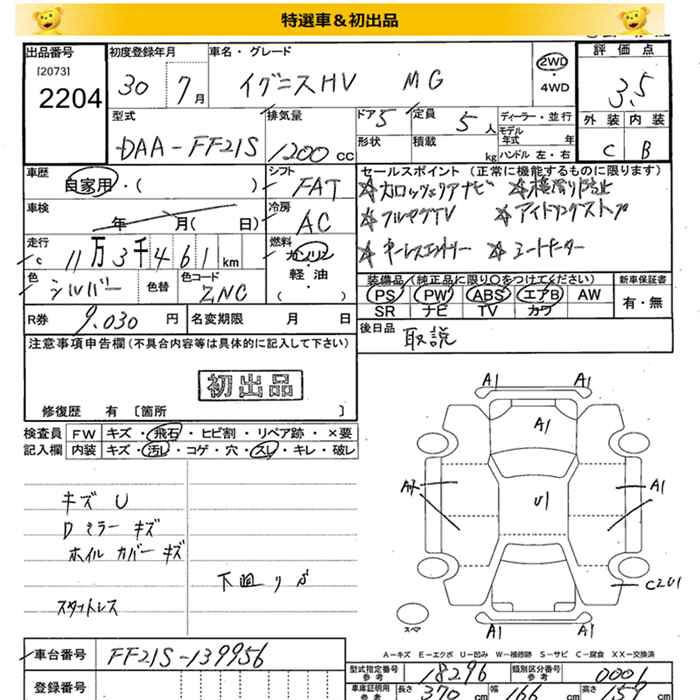 特選車＆初出品
出品番号 初度登録年月 車名・グレード 評価点
[2073]
2204 30 7月 イグニスHV MG 2WD・4WD 3.5
型式 排気量 ドア 5 定員 5人 ディーラー・並行 外装 内装
DAA-FF21S 1200cc 形状 積載 kg モデル年式 年 C B
ハンドル 左・右
車歴 シフト セールスポイント (正常に機能するものに限ります)
自家用・( ) FAT ☆カロッツェリアナビ ☆横滑り防止
車検 冷房
年 月( 日) AC ☆フルセグTV ☆アイドリングストップ
走行 11万3千461km 燃料 ガソリン 軽油 ・( ) ☆キーレスエントリー ☆シートヒーター
色 シルバー 色替 色コード ZNC 装備品 (純正品に限り○をつけてください) 新車保証書
PS PW ABS エアB AW 有・無
SR ナビ TV カワ
R券 9.030円 名変期限 月 日 後日品 取説
注意事項申告欄 (不具合内容等は具体的に記入して下さい)
初出品
修復歴 有 〔箇所 〕
検査員 FW キズ・飛石・ヒビ割・リペア跡・×要
記入欄 内装 キズ・汚レ・コゲ・穴・スレ・キレ・破レ
キズ U
Dミラー キズ
ホイルカバー キズ
下廻りサビ
スタットレス
A1 A1
A1
A1
U1
A1
C2U1
A1 A1
スペア
A－キズ E－エクボ U－凹み W－補修跡 S－サビ C－腐食 XX－交換済
車台番号 FF21S-139956
型式指定番号 参考 18296 類別区分番号 参考 0001
登録番号
車庫証明用 参考 長さ 370cm 幅 166cm 高さ 159cm